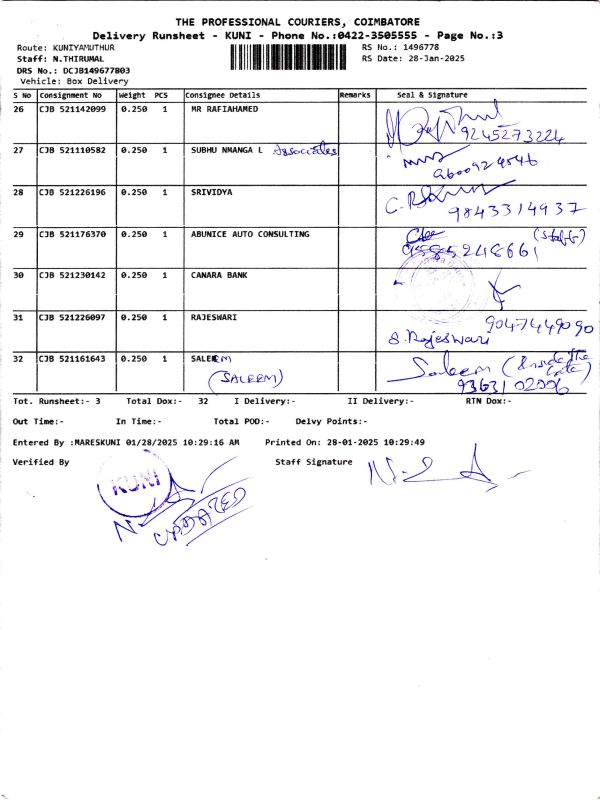 THE PROFESSIONAL COURIERS, COIMBATORE
Delivery Runsheet - KUNI - Phone No.:0422-3505555 - Page No.:3
Route: KUNIYAMUTHUR RS No.: 1496778
Staff: N.THIRUMAL RS Date: 28-Jan-2025
DRS No.: DCJB149677803
Vehicle: Box Delivery
S No Consignment No Weight PCS Consignee Details Remarks Seal & Signature
26 CJB 521142099 0.250 1 MR RAFIAHAMED
9245273224
27 CJB 521110582 0.250 1 SUBHU NMANGA L Associates
9600924546
28 CJB 521226196 0.250 1 SRIVIDYA
9843314937
29 CJB 521176370 0.250 1 ABUNICE AUTO CONSULTING (Staff)
9585248661
30 CJB 521230142 0.250 1 CANARA BANK
31 CJB 521226097 0.250 1 RAJESWARI 9047449090
S. Rajeswari
32 CJB 521161643 0.250 1 SALEEM Saleem (Inside the Gate)
(SALEEM) 9363102006
Tot. Runsheet:- 3 Total Dox:- 32 I Delivery:- II Delivery:- RTN Dox:-
Out Time:- In Time:- Total POD:- Delvy Points:-
Entered By :MARESKUNI 01/28/2025 10:29:16 AM Printed On: 28-01-2025 10:29:49
Verified By Staff Signature
KUNI